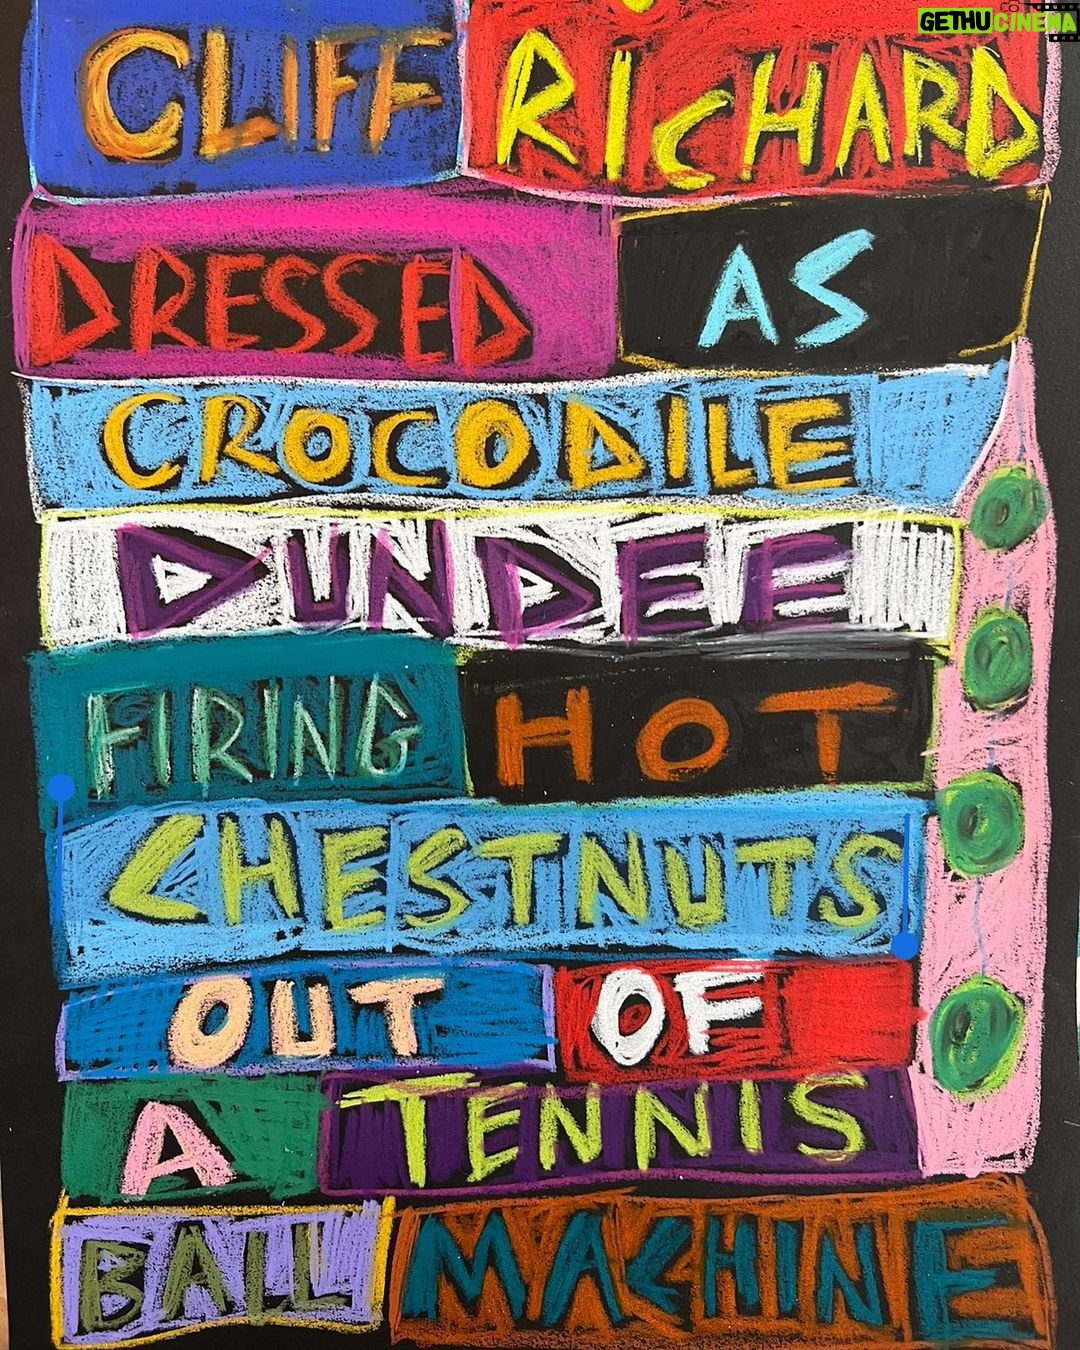 GETHUCINEMA
CLIFF RICHARD
DRESSED AS
CROCODILE
DUNDEE
FIRING HOT
CHESTNUTS
OUT OF
A TENNIS
BALL MACHINE